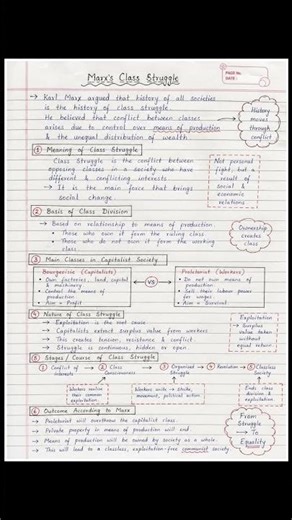 Marx's Class Struggle
PAGE No.
DATE:
→ Karl Marx argued that history of all societies
is the history of class struggle.
He believed that conflict between classes
arises due to control over means of production
& the unequal distribution of wealth
History
moves
through
conflict
① Meaning of Class Struggle
Class Struggle is the conflict between
opposing classes in a society who have
different & conflicting interests.
→ It is the main force that brings
social change.
Not personal
fight, but
a result of
social &
economic
relations
② Basis of Class Division
→ Based on relationship to means of production
• Those who own it form the ruling class
• Those who do not own it form the working
class.
Ownership
creates
class
③ Main Classes in Capitalist Society
Bourgeoisie (Capitalists)
• Own factories, land, capital
& machinery
• Control the means of
production
• Aim = Profit
VS
Proletariat (Workers)
• Do not own means of
production.
• Sell their labour power
for wages
• Aim = Survival
④ Nature of Class Struggle
→ Exploitation is the root cause
→ Capitalists extract surplus value from workers
→ This creates tension, resistance & conflict
→ Struggle is continuous, hidden or open
Exploitation
=
Surplus value
taken
without
equal return
⑤ Stages / Course of Class Struggle
① Conflict of
Interests
→ ② Class
Consciousness
→ ③ Organised
Struggle
→ ④ Revolution
→ ⑤ Classless
Society
Workers realise
their common
exploitation.
Workers unite → Strike,
movement, political action.
Ends class
division &
exploitation.
⑥ Outcome According to Marx
→ Proletariat will overthrow the capitalist class.
→ Private property in means of production will end
→ Means of production will be owned by society as a whole.
→ This will lead to a classless, exploitation-free communist society.
From
Struggle
To
Equality